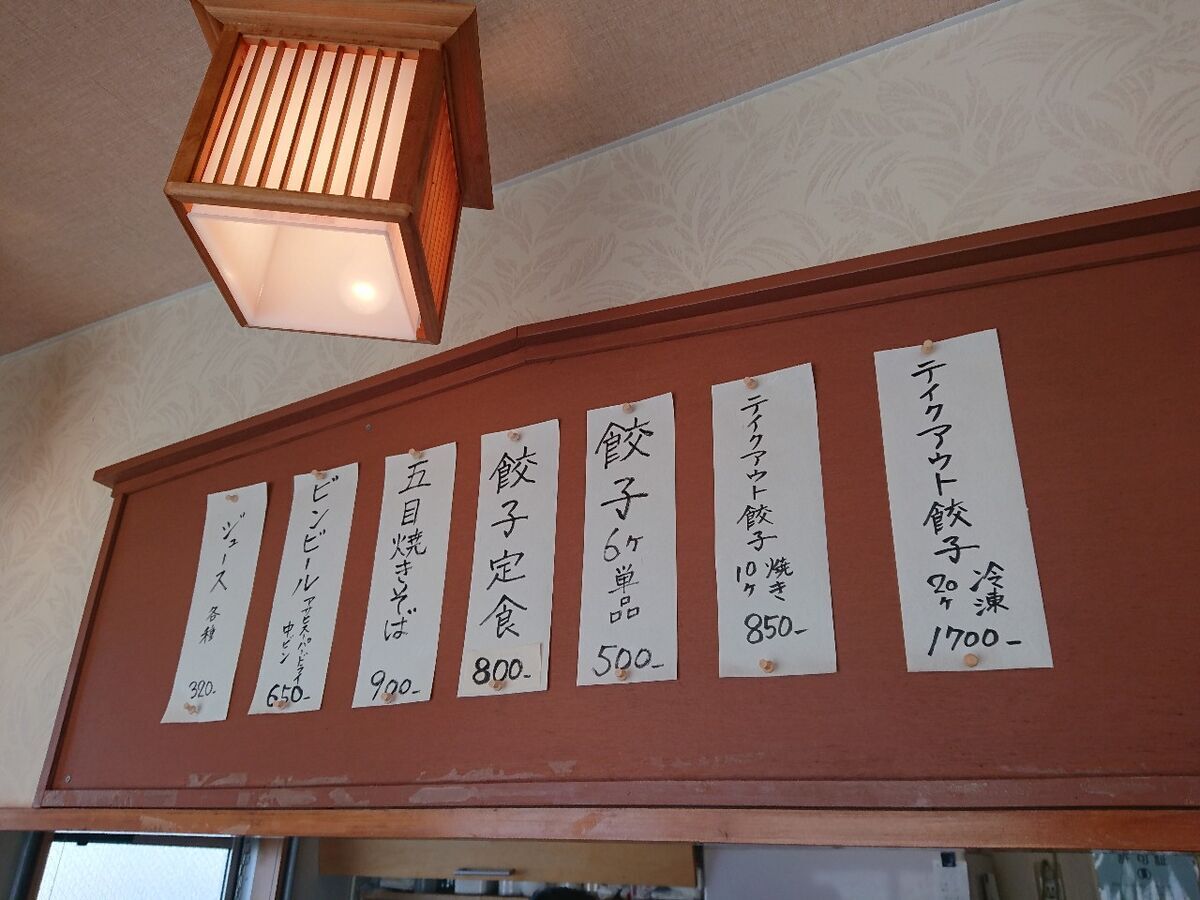 テイクアウト餃子
冷凍
20ヶ
1700-
テイクアウト餃子
焼き
10ヶ
850-
餃子6ヶ単品
500-
餃子定食
800-
五目焼きそば
900-
ビンビール
アサヒスーパードライ
中ビン
650-
ジュース
各種
320-